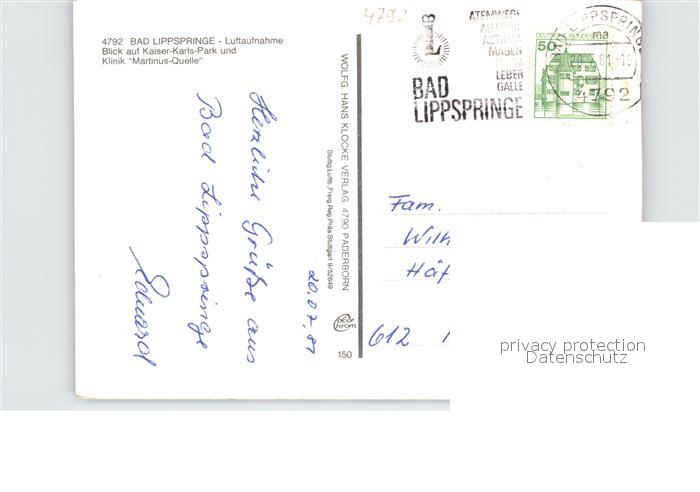 4792
4792 BAD LIPPSPRINGE - Luftaufnahme
Blick auf Kaiser-Karls-Park und
Klinik "Martinus-Quelle"
Herzliche Grüße aus
Bad Lippspringe
Eduard
20.07.81
WOLFG. HANS KLOCKE VERLAG, 4790 PADERBORN
Stuttg. Luftb. Freig. Reg. Präs. Stuttgart 9/52849
150
ATEMWEGE
ALLERGIE
ASTHMA
MAGEN
LEBER
GALLE
BAD
LIPPSPRINGE
50
DEUTSCHE BUNDESPOST
BAD LIPPSPRINGE
ma
4792
Fam.
Wilh
Häf
612
privacy protection
Datenschutz